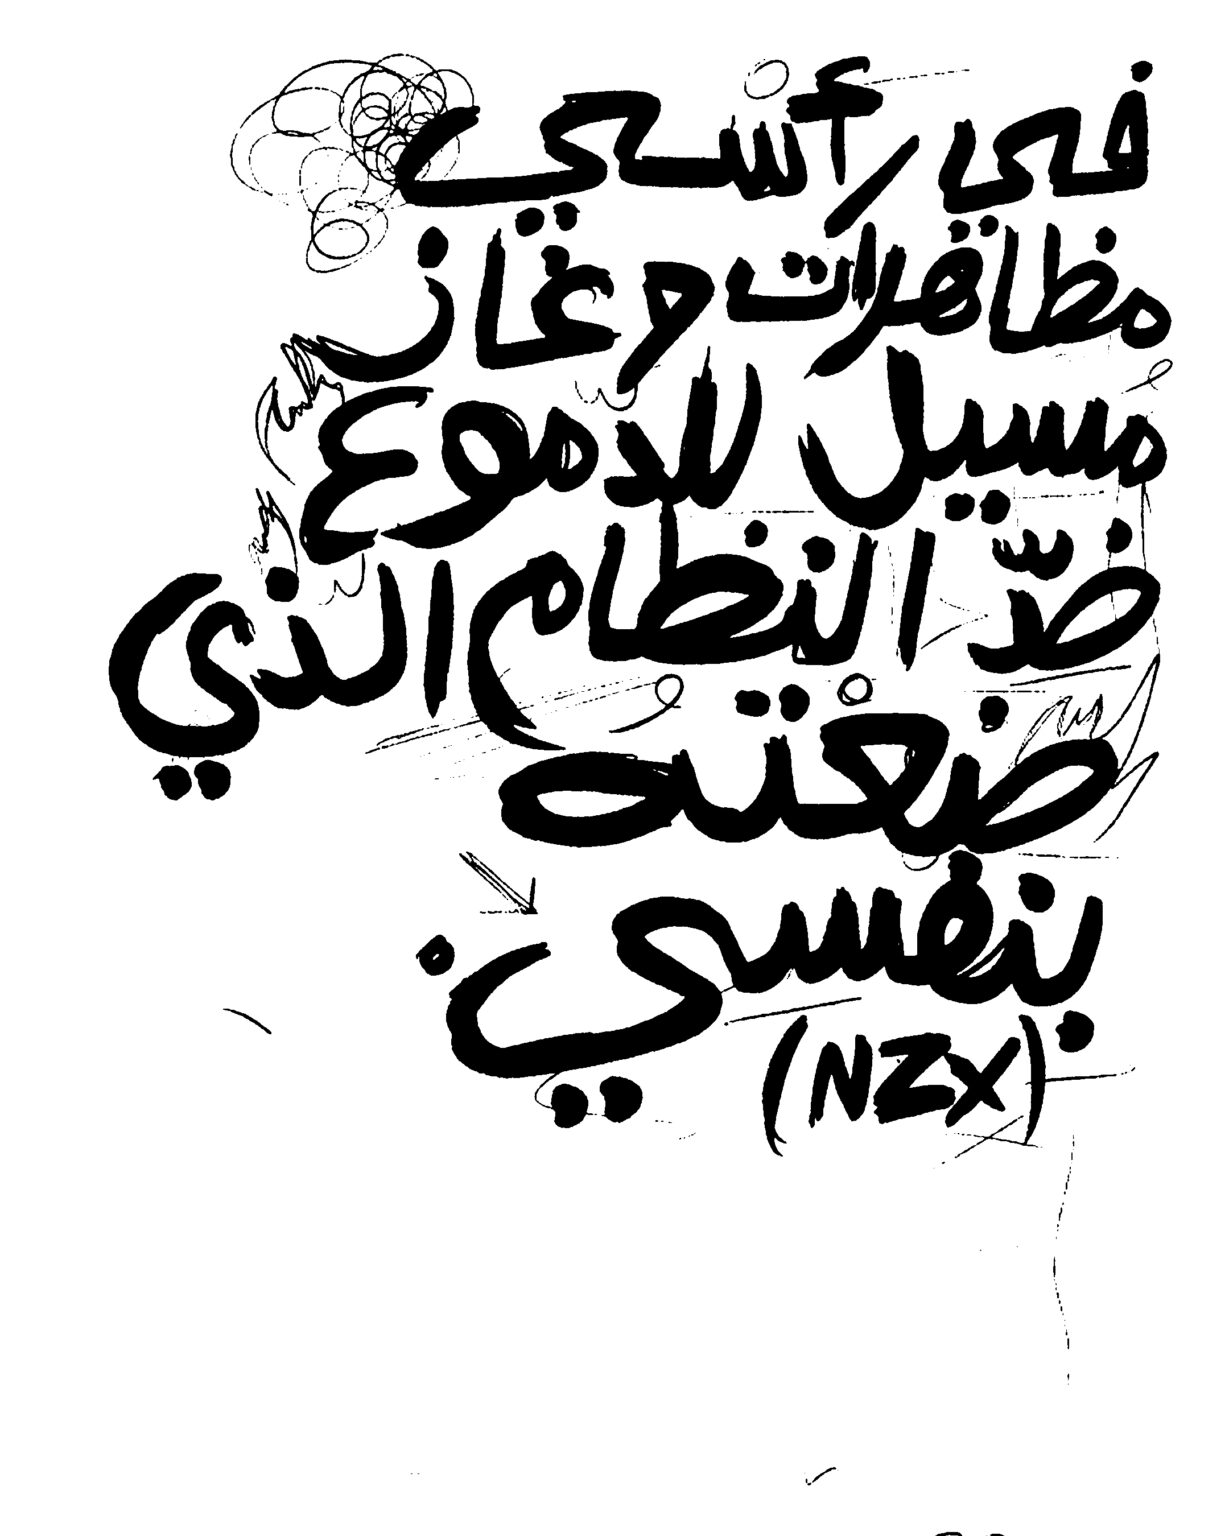 في رأسي
مظاهرات وغاز
مُسيل للدموع
ضدّ النظام الذي
ضعته
بنفسي
(NZX)